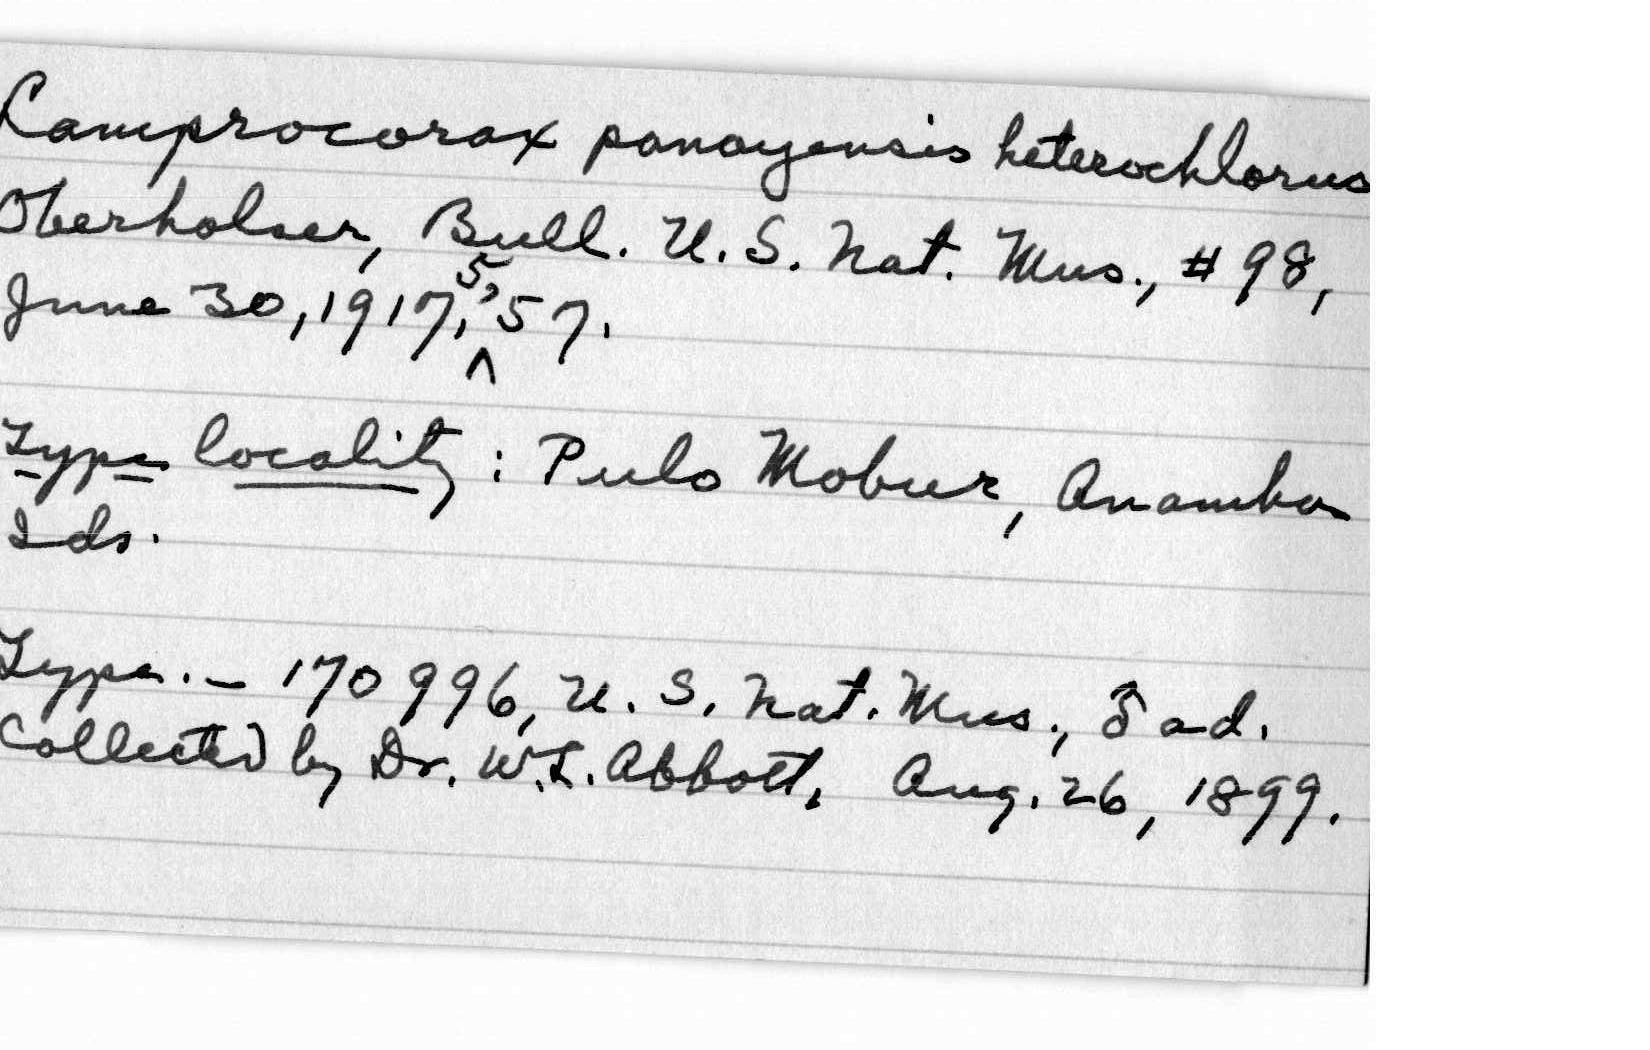 Lamprocorax panayensis heterochlorus
Oberholser, Bull. U.S. Nat. Mus., # 98,
June 30, 1917, 5, 57.
Type locality: Pulo Mobur, Anamba
Ids.
Type. – 170996, U.S. Nat. Mus., ♂ ad.
Collected by Dr. W.L. Abbott, Aug. 26, 1899.